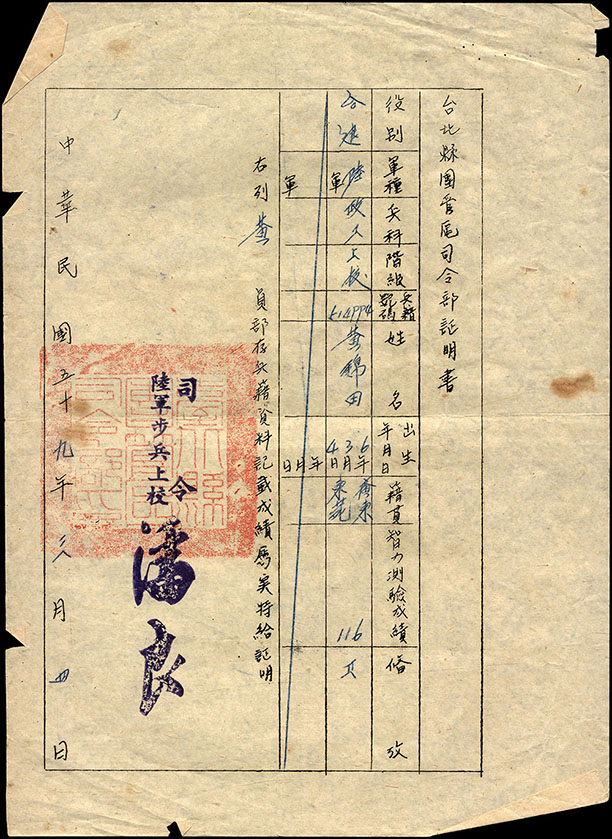 台北縣團管區司令部証明書
役別 軍種 兵科 階級 兵籍號碼 姓名 出生年月日 籍貫 智力測驗成績 備攷
陸軍 政 上校 黃錦田 6年3月4日 廣東 116
軍 年月日
右列黃 員部存兵籍資料記載成績為 特給証明
司令
陸軍步兵上校
潘良
中華民國五十九年 月四日